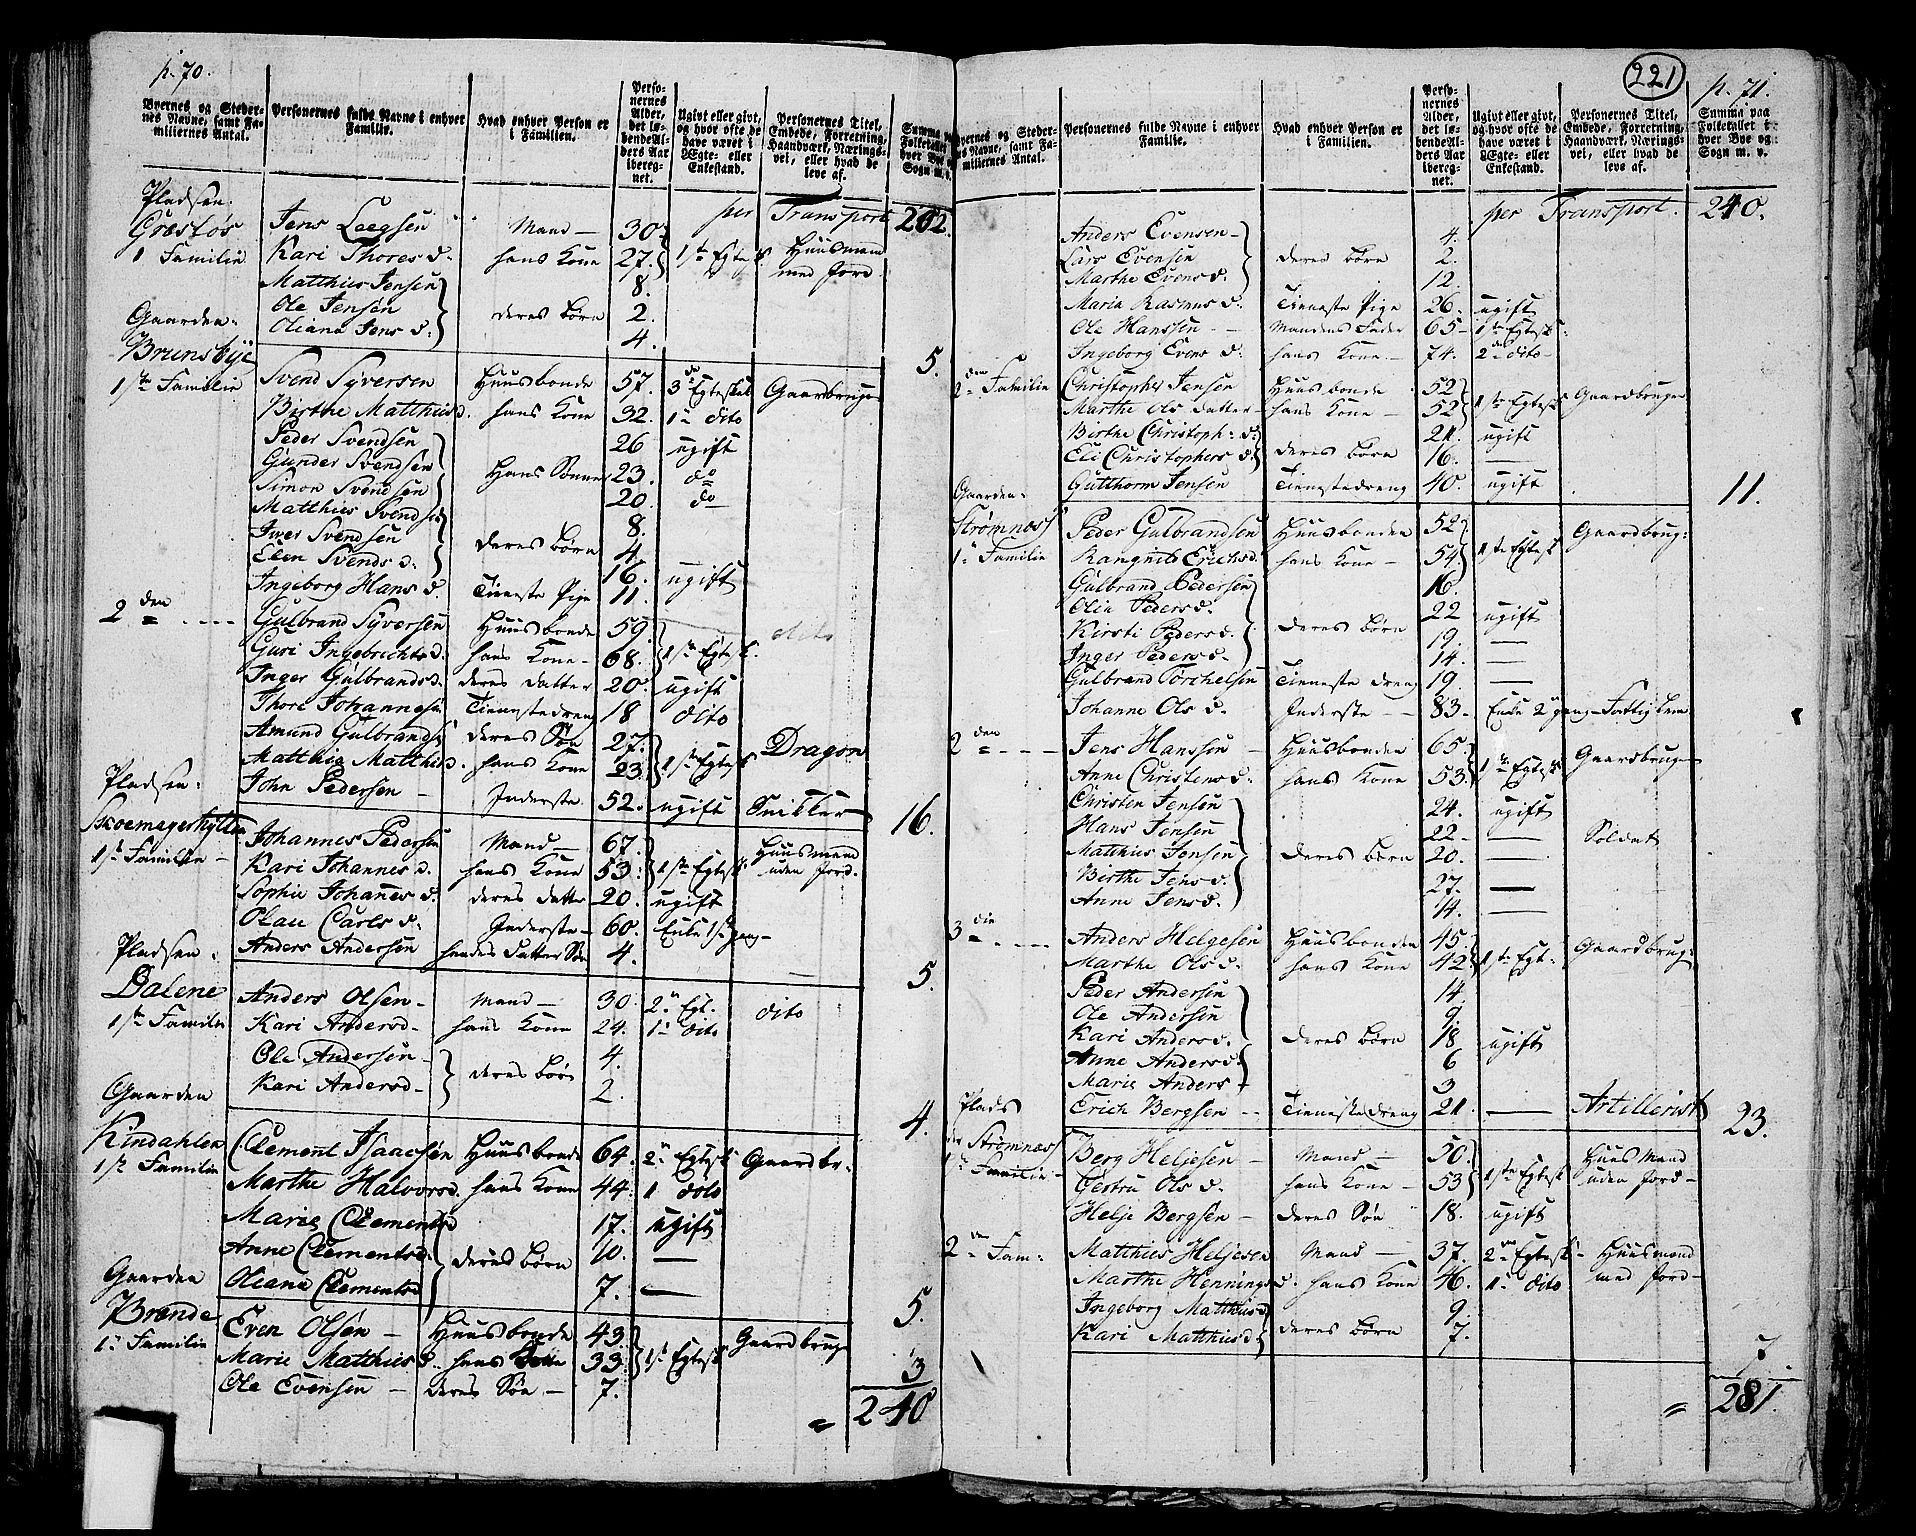 p. 70.
Byernes og Steder-
nes Navne, samt Fa-
miliernes Antal.
Personernes fulde Navne i enhver
Familie.
Hvad enhver Person er
i Familien.
Perso-
nernes
Alder,
det lø-
bende Al-
ders Aar
iberegnet.
Ugivt eller givt,
og hvor ofte de
have været i
Ægte- eller
Enkestand.
Personernes Titel,
Embede, Forretning,
Haandværk, Nærings-
vei, eller hvad de
leve af.
Summa
Folketallet
hver Bye
Sogn m. v.
per Transport 202.
Pladsen.
Græstøs
1 Familie
Jens Leegsen Mand 30
Kari Thores d. hans Kone 27. 1ste Egtesk. Huusmand med Jord
Matthies Jensen 8.
Ole Jensen deres børn 2.
Oliana Jens d. 4.
5.
Gaarden
Brunsbye
1ste Familie
Svend Syversen Huusbonde 57. 3de Egteskab Gaardbruger
Birthe Matthiesd. hans Kone 32. 1te dito
Peder Svendsen 26 ugift
Gunder Svendsen Hans Sønner 23. do
Simon Svendsen 20. do
Matthies Svendsen 8.
Iver Svendsen deres børn 4.
Elen Svends d. 16. ugift
Ingeborg Hans d. Tieneste Pige 11.
2den
Gulbrand Syversen Huusbonde 59. dito
Guri Ingebrichts d. hans Kone 68. 1ste Egtesk.
Inger Gulbrandsd. deres datter 20. ugift
Thore Johannesen Tienestedreng 18 dito
Amund Gulbrands. deres Søn 27. Dragon
Matthia Matthiesd. hans Kone 23. 1ste Egtesk.
John Pedersen Inderste 52. ugift Snikker
16.
Pladsen
Skoemagerhytten
1ste Familie
Johannes Pedersen Mand 67. Huusmand
Kari Johannes d. hans Kone 53. 1ste Egtesk. uden Jord.
Sophie Johannes d. deres datter 20. ugift
Olau Carls d. Inderste 60. Enke 1ste gang
Anders Andersen hendes Datter Søn 4.
5.
Pladsen
Dalene
1ste Familie
Anders Olsen Mand 30. 2. Egt. dito
Kari Andersd. hans Kone 24. 1. dito
Ole Andersen deres børn 4.
Kari Andersd. 2.
4.
Gaarden
Kindahlen
1ste Familie
Clement Isaacsen Huusbonde 64. 2. Egtesk. Gaardbr.
Marthe Halvorsd. hans Kone 44. 1 dito
Marie Clementsd 17. ugift
Anne Clementsd. deres børn 10. —
Oliana Clementsd 7. —
5.
Gaarden
Brænde
1. Familie
Even Olsen Huusbonde 43. Gaardbruger
Marie Matthies d. hans Kone 33. 1ste Egtesk.
Ole Evensen deres Søn 7.
3
= 240
221
p. 71.
Byernes og Steder-
nes Navne, samt Fa-
miliernes Antal.
Personernes fulde Navne i enhver
Familie.
Hvad enhver Person er
i Familien.
Perso-
nernes
Alder,
det lø-
bende Al-
ders Aar
ibereg-
net.
Ugivt eller givt,
og hvor ofte de
have været i
Ægte- eller
Enkestand.
Personernes Titel,
Embede, Forretning,
Haandværk, Nærings-
vei, eller hvad de
leve af.
Summa paa
Folketallet i
hver Bye og
Sogn m. v.
per Transport. 240.
Anders Evensen 4.
Lars Evensen deres børn 2.
Marthe Evens d. 12.
Maria Rasmus d. Tieneste Pige 26. ugift
Ole Hanssen Mandens Fader 65 1ste Egtesk.
Ingeborg Evens d. hans Kone 74. 2den dito
2den Familie
Christopher Jensen Huusbonde 52
Marthe Ols datter hans Kone 52 1ste Egtesk. Gaardbruger
Birthe Christoph. d. 21. ugift
Eli Christophers d. deres børn 16. —
Gutthorm Jensen Tienestedreng 40. ugift
11.
Gaarden
Strømnæs
1. Familie
Peder Gulbrandsen Huusbonden 52
Rangnild Erichs d. hans Kone 54. 1ste Egtesk. Gaardbrug:
Gulbrand Pedersen 16.
Olia Peders d. 22 ugift
Kirsti Peders d. deres børn 19. —
Inger Peders d. 14. —
Gulbrand Torchelsen Tieneste dreng 19. —
Johanne Ols d. Inderste 83. Enke 2 gang Fattig Lem
2den
Jens Hanssen Huusbonden 65. Gaardbruger
Anne Christens d. hans Kone 53. 1te Egtesk.
Christen Jensen 24. ugift
Hans Jensen 22. — Soldat
Matthies Jensen deres børn 20. —
Birthe Jens d. 27. —
Anne Jens d. 14. —
3die
Anders Helgesen Huusbonden 45. Gaardbrug:
Marthe Ols d. hans Kone 42. 1ste Egt.
Peder Andersen 14.
Ole Andersen 9.
Kari Anders d. deres børn 18 ugift
Anne Anders d. 6
Marie Anders 3
Erich Bergsen Tieneste dreng 21. — Artillerist
23.
Plads
Strømnæs
1te Familie
Berg Heljesen Mand 50. Huus Mand
Gertru Ols d. hans Kone 53 1ste Egtesk uden Jord
Helje Bergsen deres Søn 18. ugift
2den Fam:
Matthies Heljesen Mand 37. 2den Egtesk Huusmand
Marthe Hennings d. hans Kone 46. 1. dito med Jord
Ingeborg Matthiesd 9.
Kari Matthiesd deres børn 7.
7
= 281.